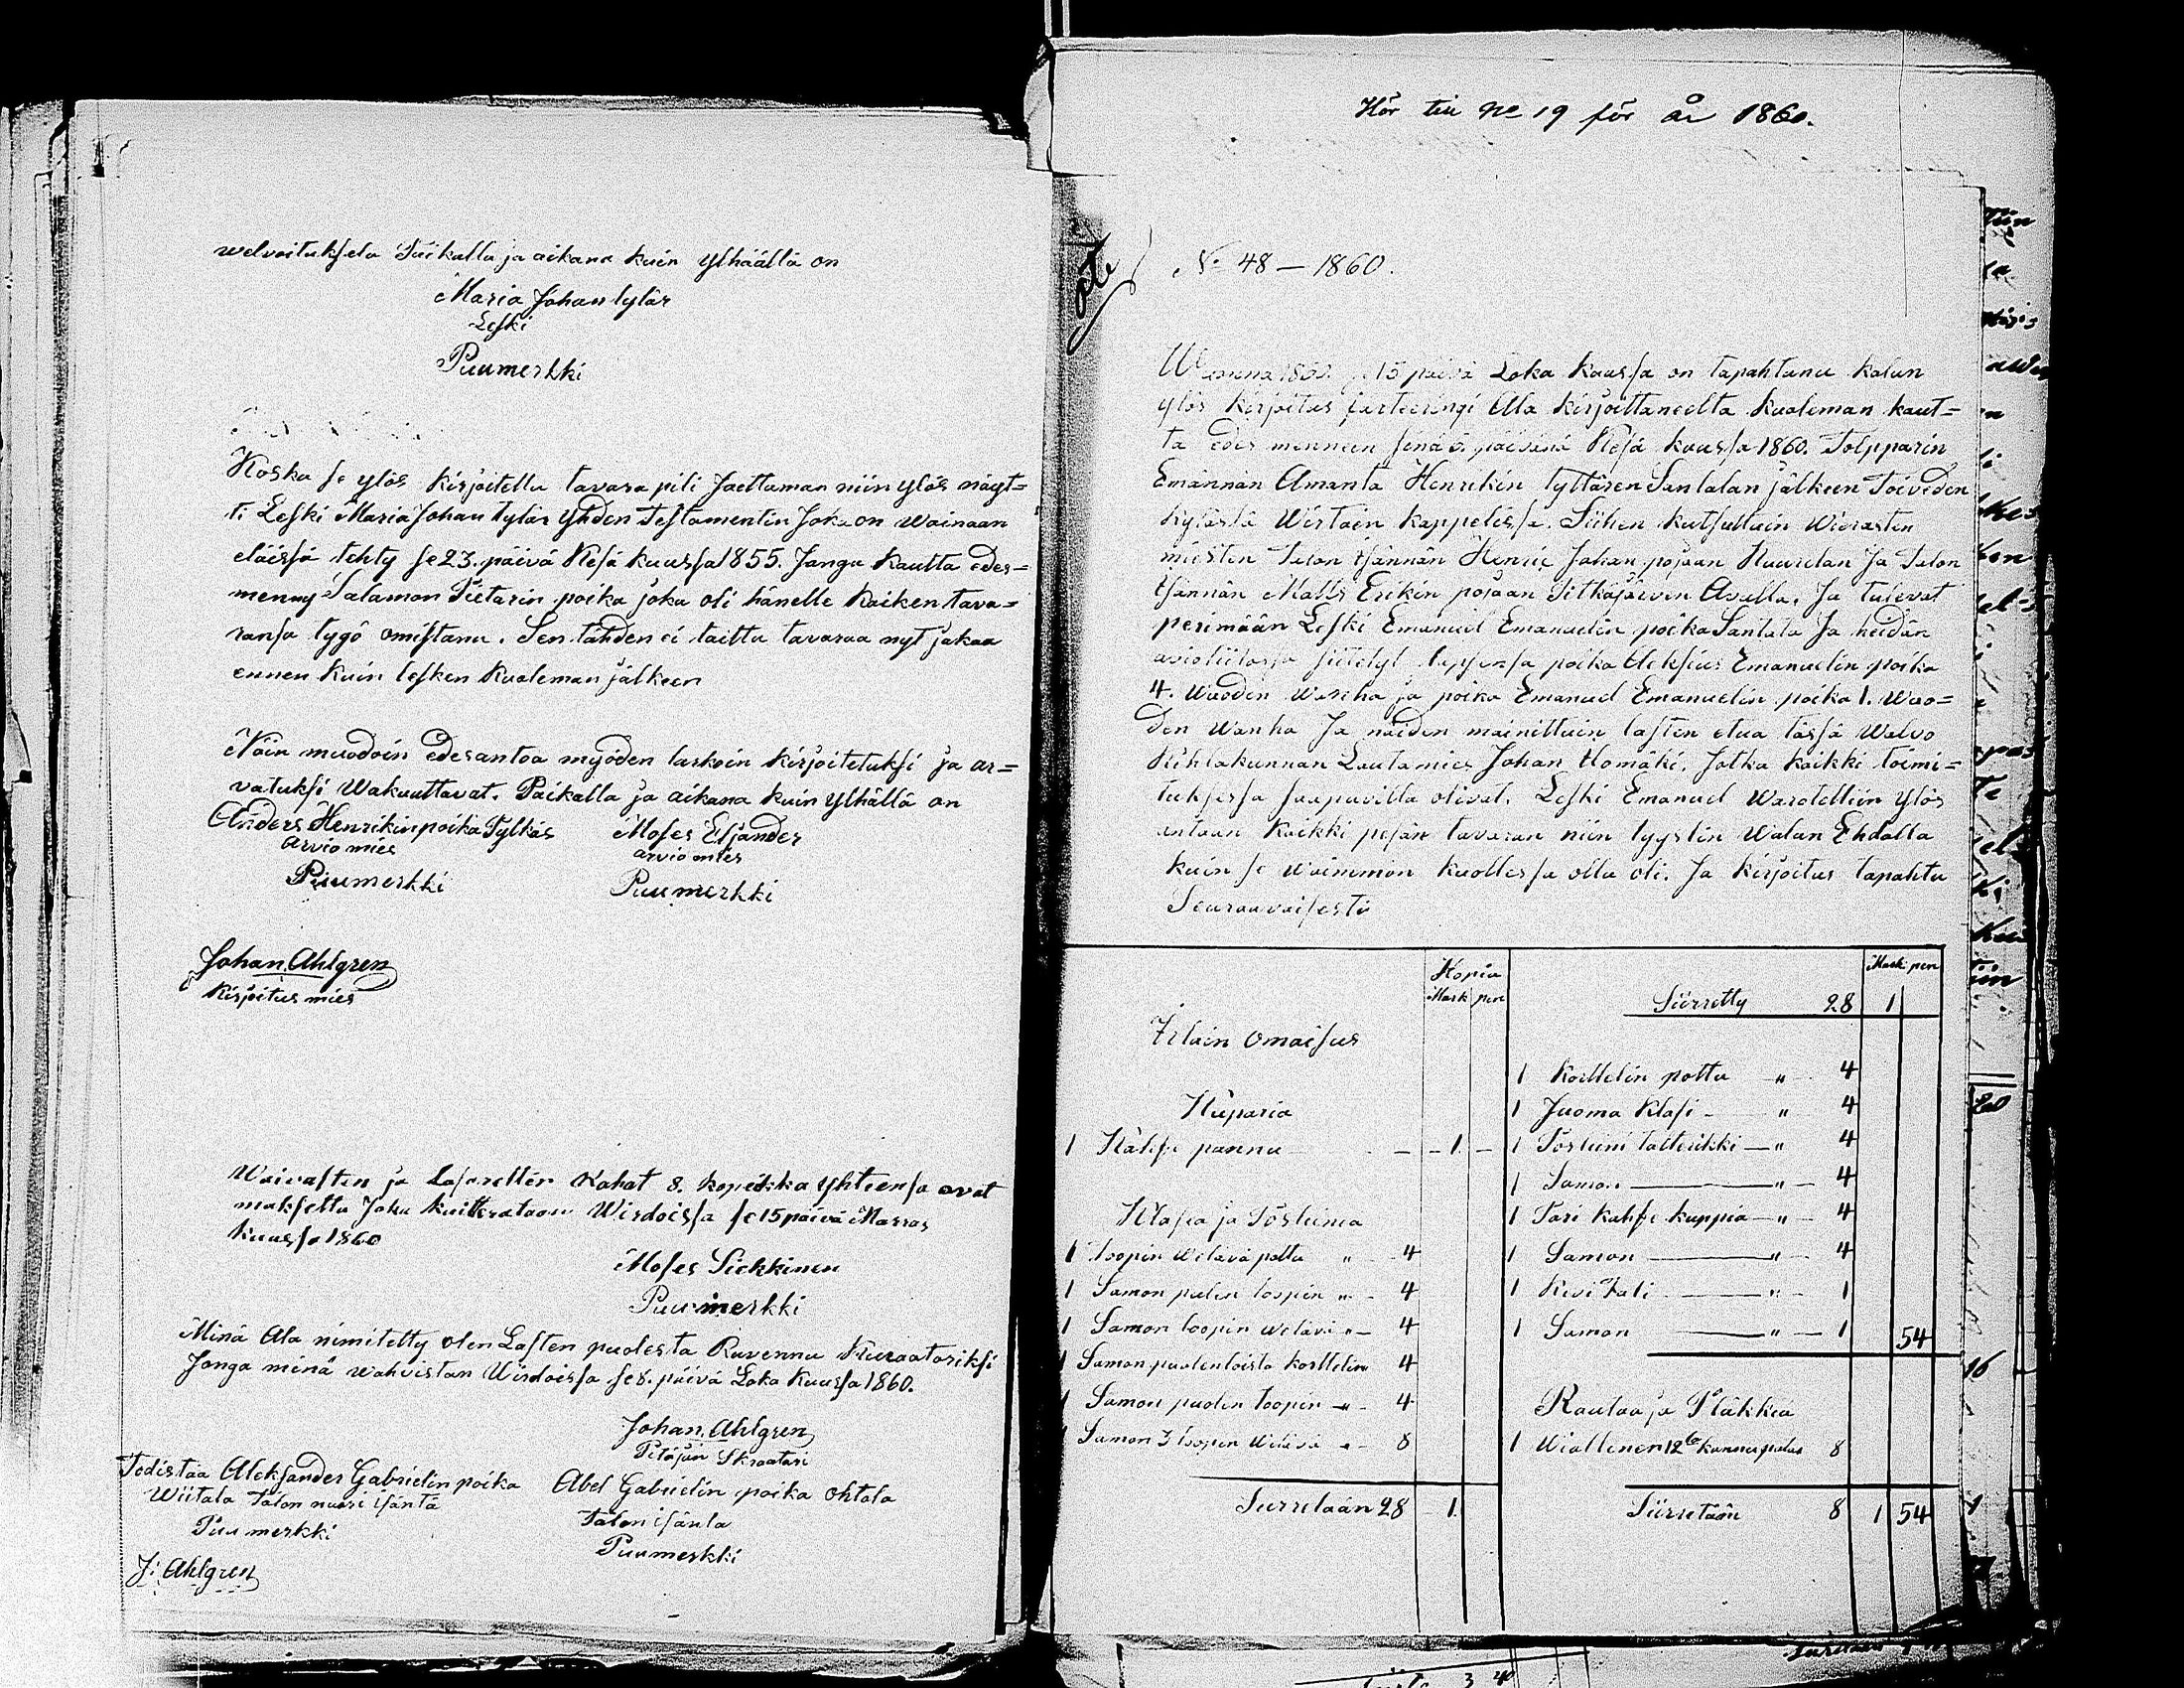 welvoituksela Paikalla ja aikana kuin ylhäällä on
Maria Johan tytär
Leski
Puumerkki
Koska se ylös kirjoitettu tavara piti Jaettaman niin ylös näyt=
ti Leski Maria Johan tytär yhden Testamentin Joka on wainaan
eläissä tehty se 23. päivä Kesä kuussa 1855. Jonga kautta edes=
menny Salamon Pietarin poika joka oli hänelle kaiken tava=
ransa tygö omistanu. Sen tähden ei taitta tavaraa nyt jakaa
ennen kuin lesken kuoleman jälkeen
Näin muodoin edesantoa myöden laskein kirjoitetuksi ja ar=
vatuksi wakuuttavat. Paikalla ja aikana kuin ylhällä on
Anders Henrikin poika Pylkäs Moses Elfander
arvio mies arvio mies
Puumerkki Puumerkki
Johan Ahlgren
kirjoitus mies
Waivasten ja Lasarettin Rahat 8. kopeikka yhteensä ovat
maksettu Joka kuitterataan Wirdoissa se 15 päivä Marras
kuussa 1860
Moses Siekkinen
Puumerkki
Minä Ala nimitetty olen Lasten puolesta Ruvennu Kuraatoriksi
Jonga minä wahvistan Wirdoissa se 8. päivä Loka kuussa 1860.
Johan Ahlgren
Pitäjän Skraatari
Todistaa Aleksander Gabrielin poika Abel Gabrielin poika Ohtola
Wiitala Talon nuori isäntä Talon isäntä
Puumerkki Puumerkki
J: Ahlgren
Hör till No 19 för år 1860.
No 48 — 1860.
Wuonna 1860 15 päivä Loka kuussa on tapahtunu kalun
ylös kirjoitus ja Ala kirjoittaneelta kuoleman kaut=
ta edes menneen sinä 6. päivänä Kesä kuussa 1860. Tolpparin
Emännän Amanta Henrikin tyttären Santalan jälkeen Toiveden
kylässä Wirtain kappelissa. Siihen kutsuttuin Wierasten
miesten Talon Isännän Henric Johan pojaan Ja Talon
Isännän Matts Erikin pojaan Pitkäjärven Avulla. Ja tulevat
perimään Leski Emanuel Emanuelin poika Santala Ja heidän
avioliitossa siitetyt lapsensa poika Aleksius Emanuelin poika
4. Wuoden Wanha ja poika Emanuel Emanuelin poika 1. Wuo=
den Wanha Ja näiden mainittuin lasten etua tässä Walvo
Kihlakunnan Lautamies Johan Homäki. Jotka kaikki toimi=
tuksessa saapuvilla olivat. Leski Emanuel Warotettiin ylös
antaan kaikki pesän tavaran niin tyystin Walan Ehdolla
kuin se waimmon kuollessa ollu oli. Ja kirjoitus tapahtu
Seuraavaisesti
Kopia
Mark pen
Irtain Omaisus
Kuparia
1 Kahfe pannu — 1 —
Klasia ja Posliinia
1 toopin wetävä pottu " 4
1 Samon puolen toopin " 4
1 Samon toopin wetävä " 4
1 Samon puolentoista korttelin 4
1 Samon puolen toopin " 4
1 Samon 3 toopin wetävä " 8
Siirretään 28 1.
Mark pen
Siirretty 28 1
1 korttelin pottu " 4
1 Juoma Klasi " 4
1 Posliini tallerikki " 4
1 Samon " 4
1 Pari kahfe kuppia " 4
1 Samon " 4
1 Kivi Fati " 1
1 Samon " 1 54
Rautaa ja Pläkkiä
1 8
Siirretään 8 1 54